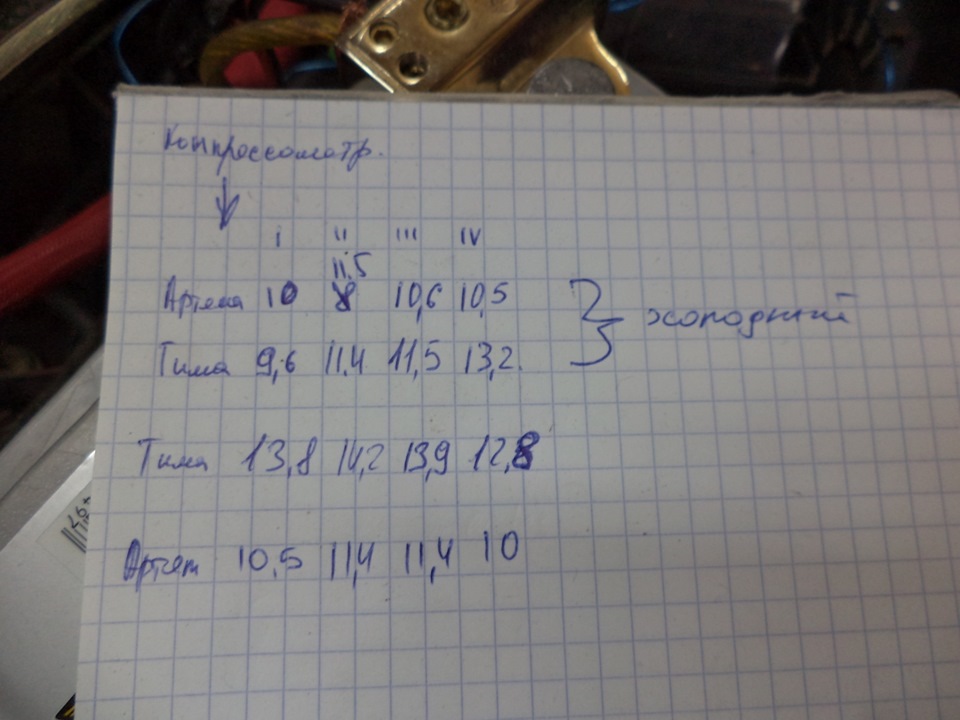 Компрессометр.
I II III IV
11.5
Артема 10 8 10,6 10,5
Тима 9,6 11,4 11,5 13,2
холодный
Тима 13,8 14,2 13,9 12,8
Артем 10,5 11,4 11,4 10